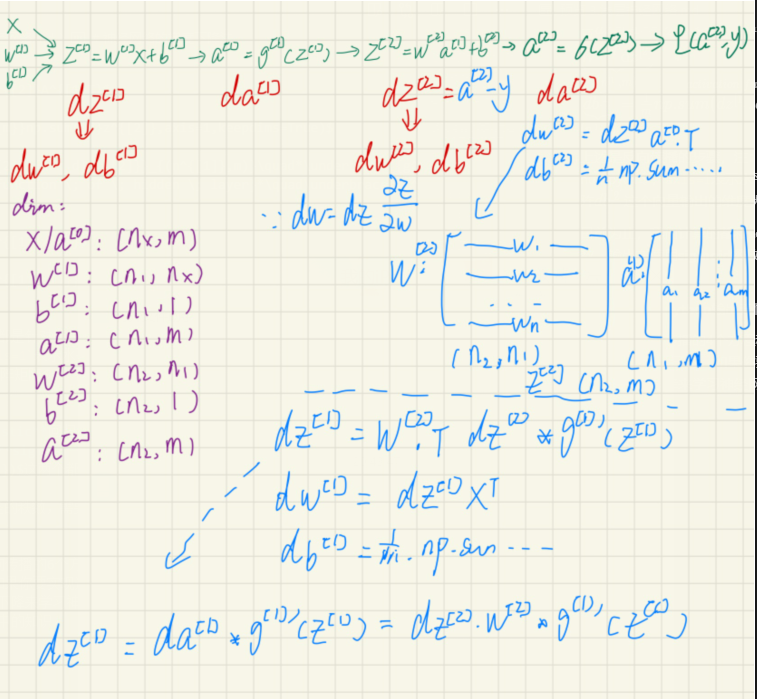 X
w^[1] → z^[1] = w^[1]x + b^[1] → a^[1] = g^[1](z^[1]) → z^[2] = w^[2]a^[1] + b^[2] → a^[2] = σ(z^[2]) → L(a^[2], y)
b^[1]
dz^[1] da^[1] dz^[2] = a^[2] - y da^[2]
⇓ ⇓ dw^[2] = dz^[2] a^[1].T
dw^[1], db^[1] dw^[2], db^[2] db^[2] = 1/n np.sum .....
dim:
∵ dw = dz ∂z/∂w
X/a^[0]: (nx, m)
w^[1]: (n1, nx)
b^[1]: (n1, 1)
a^[1]: (n1, m)
w^[2]: (n2, n1)
b^[2]: (n2, 1)
a^[2]: (n2, m)
W^[2]: [ — w1 — a^[1]: [ | | |
— w2 — a1 a2 : am
.. -
— wn — ] | | | ]
(n2, n1) (n1, m)
z^[2] (n2, m)
dz^[1] = W^[2].T dz^[2] * g^[1]'(z^[1])
dw^[1] = dz^[1] X^T
db^[1] = 1/m . np.sum ---
dz^[1] = da^[1] * g^[1]'(z^[1]) = dz^[2] . W^[2] * g^[1]'(z^[1])